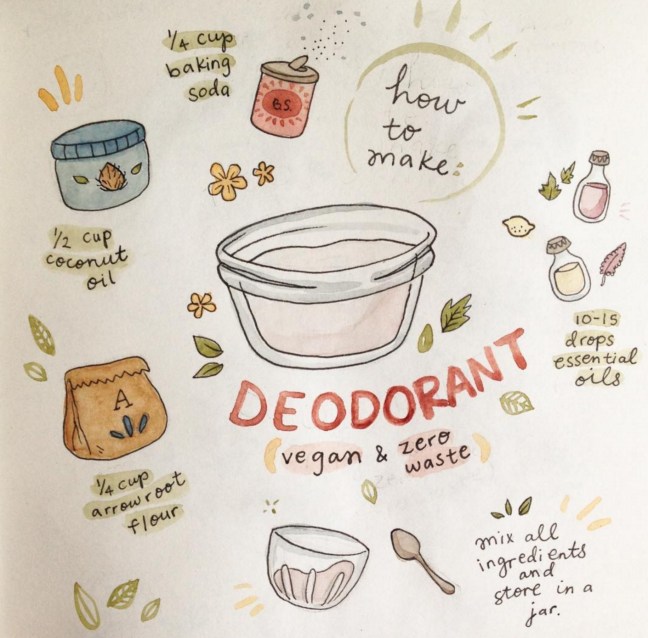 1/4 cup
baking
soda
B.S.
how
to
make:
1/2 cup
coconut
oil
10-15
drops
essential
oils
A
DEODORANT
(vegan & zero
waste)
1/4 cup
arrowroot
flour
mix all
ingredients
and
store in a
jar.